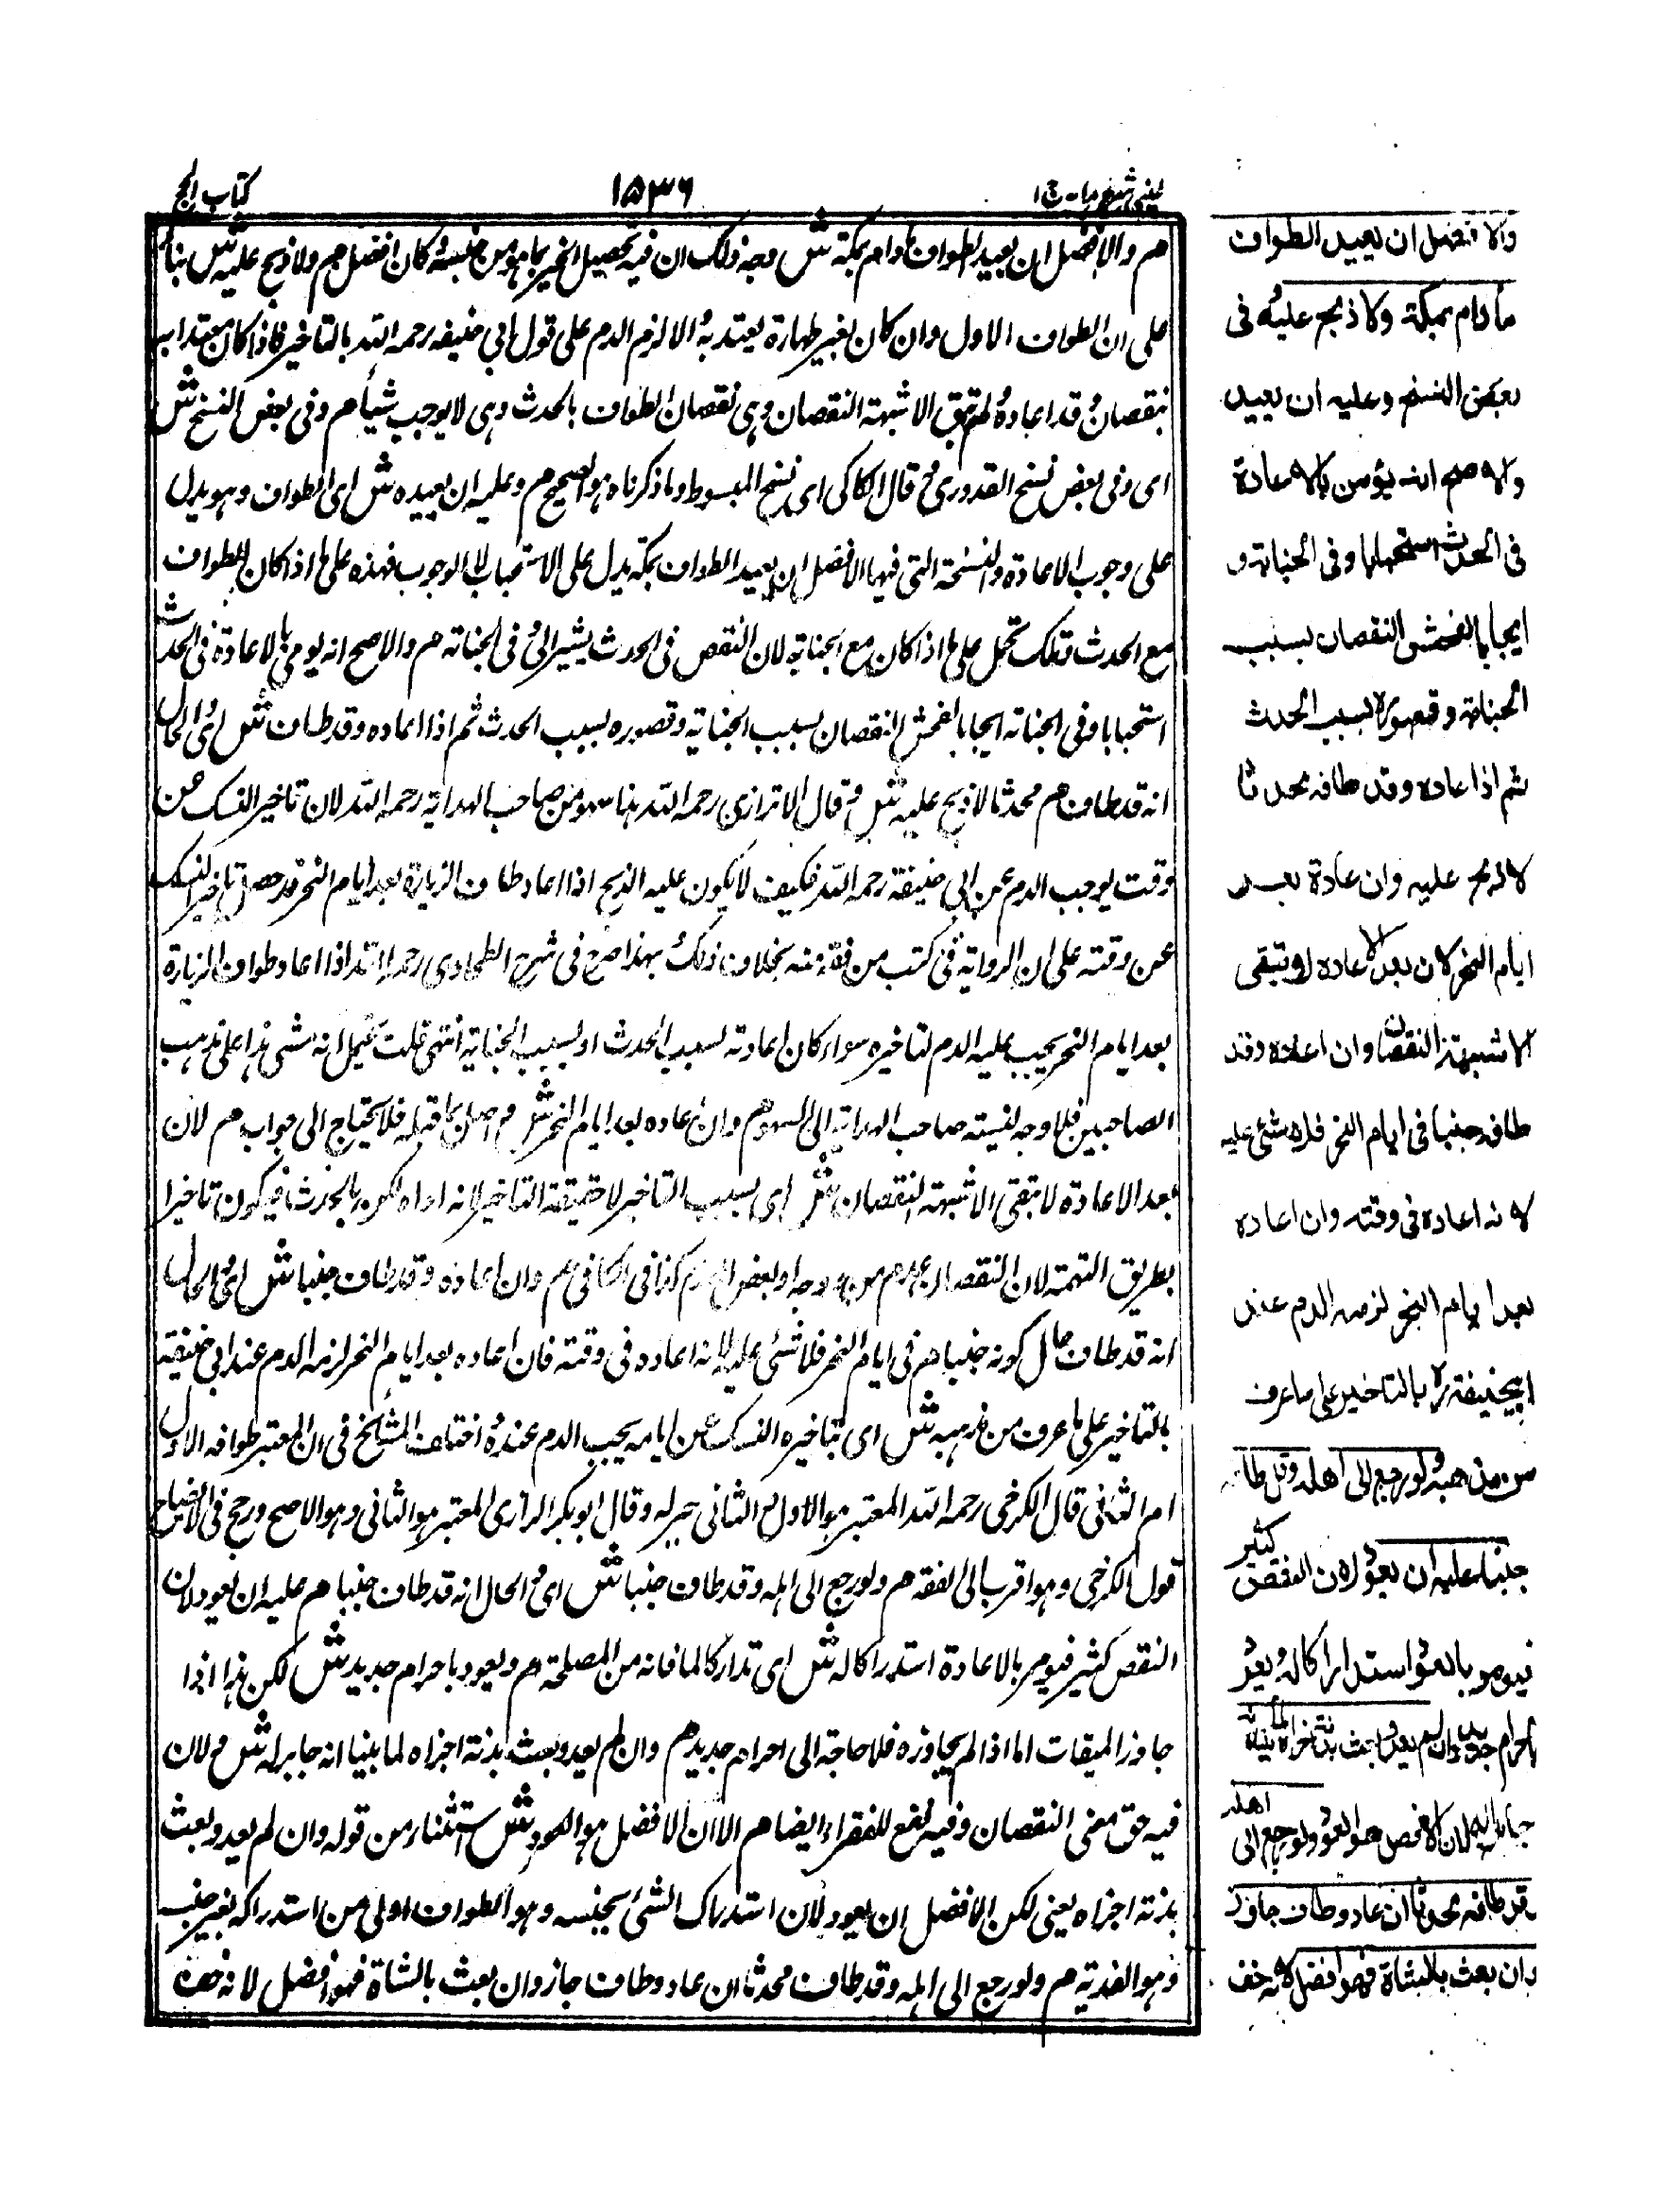 عینی شرح ہدایہ ج ۱
۱۵۳۶
کتاب الحج
م والافضل ان یعید الطواف مادام بمکة ش وجه ذلک ان فیه تحصیل الجبر بما هو من جنسه فکان افضل م ولا ذبح علیه ش بناءً
علی ان الطواف الاول وان کان بغیر طهارة یعتد به الا لزم الدم علی قول ابی حنیفه رحمه الله بالتاخیر فاذا کان معتدا به
بنقصان قد اعاده لم تبق الا شبهة النقصان وهی نقصان الطواف بالحدث وهی لا یوجب شیأ م وفی بعض النسخ ش
ای وفی بعض نسخ القدوری م قال الکاکی ای نسخ المبسوط وما ذکرناه هو الصحیح م وعلیه ان یعیده ش ای الطواف وهو یدل
علی وجوب الاعادة والنسخة التی فیها الافضل ان یعید الطواف بمکة یدل علی الاستحباب لا الوجوب فهذه علی ما اذا کان الطواف
مع الحدث وتلک تحمل علی ما اذا کان مع الجنابة لان النقص فی الحدث یسیر لا فی الجنابة م والاصح انه یومر بالاعادة فی الحدث
استحبابا وفی الجنابة ایجابا لفحش النقصان بسبب الجنابة وقصوره بسبب الحدث ثم اذا اعاده وقد طاف ش ای الحال
انه قد طاف م محدثا لا ذبح علیه ش قال الاترازی رحمه الله هنا سهو من صاحب الهدایة رحمه الله لان تاخیر النسک عن
وقت یوجب الدم عن ابی حنیفة رحمه الله فکیف لا یکون علیه الذبح اذا اعاد طاف الزیارة بعد ایام النحر قد حصل تاخیر النسک
عن وقته علی ان الروایة فی کتب من فقهه بخلاف ذلک بهذا صرح فی شرح الطحاوی رحمه الله اذا اعاد طواف الزیارة
بعد ایام النحر یجب علیه الدم لتاخیره سواء کان اعادته بسبب الحدث او بسبب الجنابة انتهی قلت یحمل انه مشی هذا علی مذهب
الصاحبین فلا وجه لنسبته صاحب الهدایة الی السهو م وان اعاده بعد ایام النحر ش م اصل بما قبله فلا یحتاج الی جواب م لان
بعد الاعادة لا تبقی الا شبهة النقصان ش ای بسبب التاخیر لا حقیقة التاخیر لانه اداه لکن بالحدث فیکون تاخیرا
بطریق التهمة لان النقصان من وجه او بعض کذا فی الکافی م وان اعاده وقد طاف جنبا ش ای الحال
انه قد طاف حال کونه جنبا م فی ایام النحر فلا شئ علیه لانه اعاده فی وقته فان اعاده بعد ایام النحر لزمه الدم عند ابی حنیفة
بالتاخیر علی ما عرف من مذهبه ش ای بتاخیره النسک عن ایامه یجب الدم عنده اختلف المشائخ فی ان المعتبر طوافه الاول
ام الثانی قال الکرخی رحمه الله المعتبر هو الاول والثانی جبر له وقال ابو بکر الرازی المعتبر هو الثانی وهو الاصح ورجح فی الایضاح
قول الکرخی وهو اقرب الی الفقه م ولو رجع الی اهله وقد طاف جنبا ش ای الحال انه قد طاف جنبا م علیه ان یعود لان
النقص کثیر فیومر بالاعادة استدراکا له ش ای تدارکا لما فاته من المصلحة م ویعود باحرام جدید ش لکن هذا اذا
جاوز المیقات اما اذا لم یجاوزه فلا حاجة الی احرام جدید م وان لم یعد وبعث بدنة اجزاه لما بینا انه جابر له ش م لان
فیه حق معنی النقصان وفیه نفع للفقراء ایضا م الا ان الافضل هو العود ش استثناء من قوله وان لم یعد وبعث
بدنة اجزاه یعنی لکن الافضل ان یعود لان استدراک الشئ بجنسه وهو الطواف اولی من استدراکه بغیر جنسه
وهو الفدیة م ولو رجع الی اهله وقد طاف محدثا ان عاد وطاف جاز وان بعث بالشاة فهو افضل لانه خف
والافضل ان یعید الطواف
مادام بمکة ولا ذبح علیه فی
بعض النسخ وعلیه ان یعید
والاصح انه یؤمر بالاعادة
فی الحدث استحبابا وفی الجنابة
ایجابا لفحش النقصان بسبب
الجنابة وقصوره بسبب الحدث
ثم اذا عاده وقد طافه محدثا
لا ذبح علیه وان عادة بعد
ایام النحر لان بعد الاعادة لا تبقی
الا شبهة النقصان وان اعاده وقد
طافه جنبا فی ایام النحر فلا شئ علیه
لانه اعاده فی وقته وان اعاده
بعد ایام النحر لزمه الدم عند
ابیحنیفة ره بالتاخیر علی ما عرف
من مذهبه ولو رجع الی اهله وقد طافه
جنبا علیه ان یعود لان النقص کثیر
فیومر بالعود استدراکا له ویعود
باحرام جدید وان لم یعد وبعث بدنة اجزاه لما بینا انه
جابر له الا ان الافضل هو العود ولو رجع الی اهله
وقد طافه محدثا ان عاد وطاف جاز
وان بعث بالشاة فهو افضل لانه خف